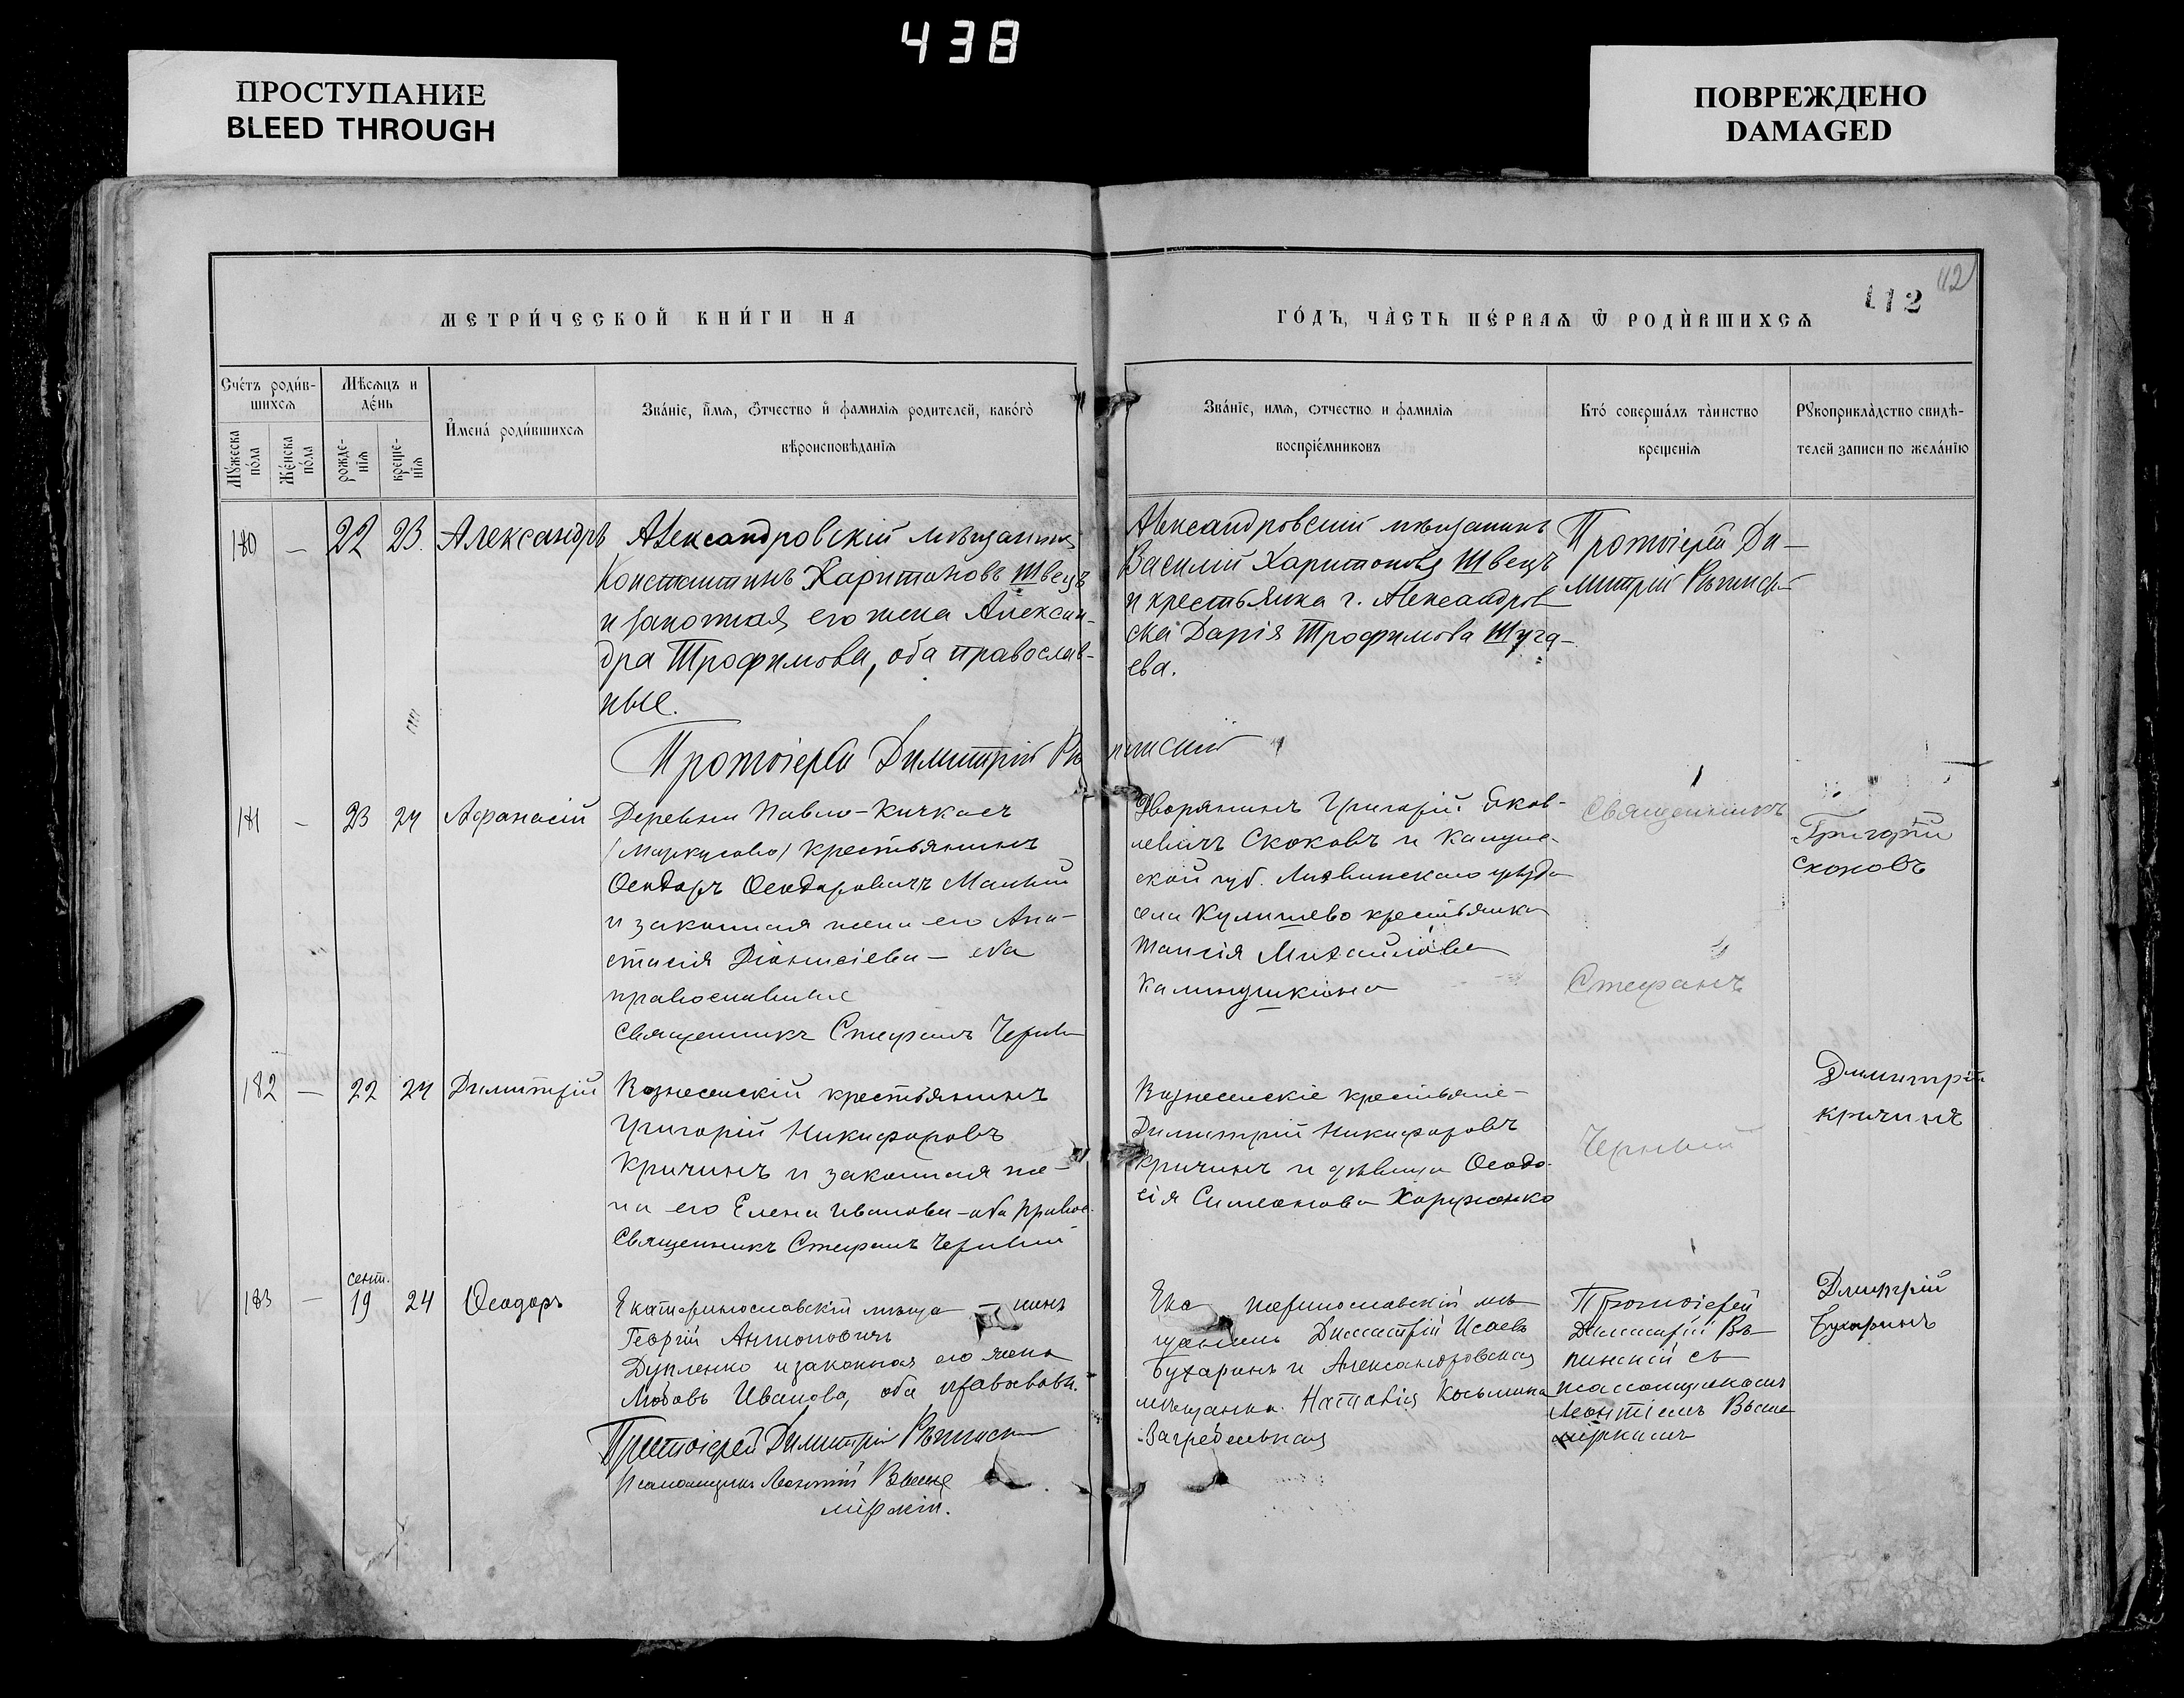 438
ПРОСТУПАНИЕ
BLEED THROUGH
ПОВРЕЖДЕНО
DAMAGED
112
112
МЕТРИ́ЧЕСКОЙ КНИ́ГИ НА
ГО́ДЪ, ЧА̀СТЬ ПЕ́РВАѦ Ѿ РОДЍВШИХСѦ
Сче́тъ роди́в-
шихсѧ
Мѣ́сѧцъ и
де́нь
И҆мена́ роди́вшихсѧ
Зва́нїе, и҆́мѧ, ѻ҆́тчество и҆ фамилїѧ родителей, како́гѡ
вѣроисповѣ́данїѧ
Мꙋ́жеска
по́ла
Же́нска
по́ла
рожде-
нїѧ
креще-
нїѧ
Зва́нїе, имѧ, ѻтчество и фамилїѧ
воспрїе́мниковъ
Кто́ соверша́лъ та̀инство
крещенїѧ
Рꙋкоприкла̀дство свидѣ́-
телей записи по жела́нїю
180 — 22 23. Александръ
Александровскій мѣщанинъ
Константинъ Харитоновъ Швецъ
и законная его жена Алексан-
дра Трофимова, оба православ-
ные.
Протоіерей Димитрій Рѣпинскій
Александровскій мѣщанинъ
Василій Харитоновъ Швецъ
и крестьянка г. Александров
ска Дарія Трофимова Шуга-
ева.
Протоіерей Ди-
митрій Рѣпинскій
181 — 23 24 Афанасій
Деревни Павло-Кичкасъ
крестьянинъ
Ѳеодоръ Ѳеодоровичъ Малый
и законная жена его Ана-
стасія Діонисіева — оба
православные
Священникъ Стефанъ Черный
Дворянинъ Григорій Яков-
левичъ Скоковъ и Калуж-
ской губ. Лихвинскаго уѣзда
села Кулишево крестьянка
Таисія Михайлова
Калиндушкина
Священникъ
Стефанъ
Черный
Григорій
Скоковъ
182 — 22 24 Димитрій
Вознесенскій крестьянинъ
Григорій Никифоровъ
Кричинъ и законная же-
на его Елена Иванова — оба правос.
Священникъ Стефанъ Черный
Вознесенскіе крестьяне —
Димитрій Никифоровъ
Кричинъ и дѣвица Ѳеодо-
сія Симеонова Харченко
Димитрій
Кричинъ
183 — сент. 19 24 Ѳеодоръ
Екатеринославскій мѣща — нинъ
Георгій Антоновичъ
Дупленко и законная его жена
Любовь Иванова, оба православн.
Протоіерей Димитрій Рѣпинск
Псаломщикъ Леонтій Выше
мірскій.
Ека теринославскій мѣ
щанинъ Димитрій Исаевъ
Бухаринъ и Александровская
мѣщанка Наталія Косьмина
Загребельная
Протоіерей
Димитрій Рѣ-
пинскій съ
псаломщикомъ
Леонтіемъ Выше
мірскимъ
Димитрій
Бухаринъ